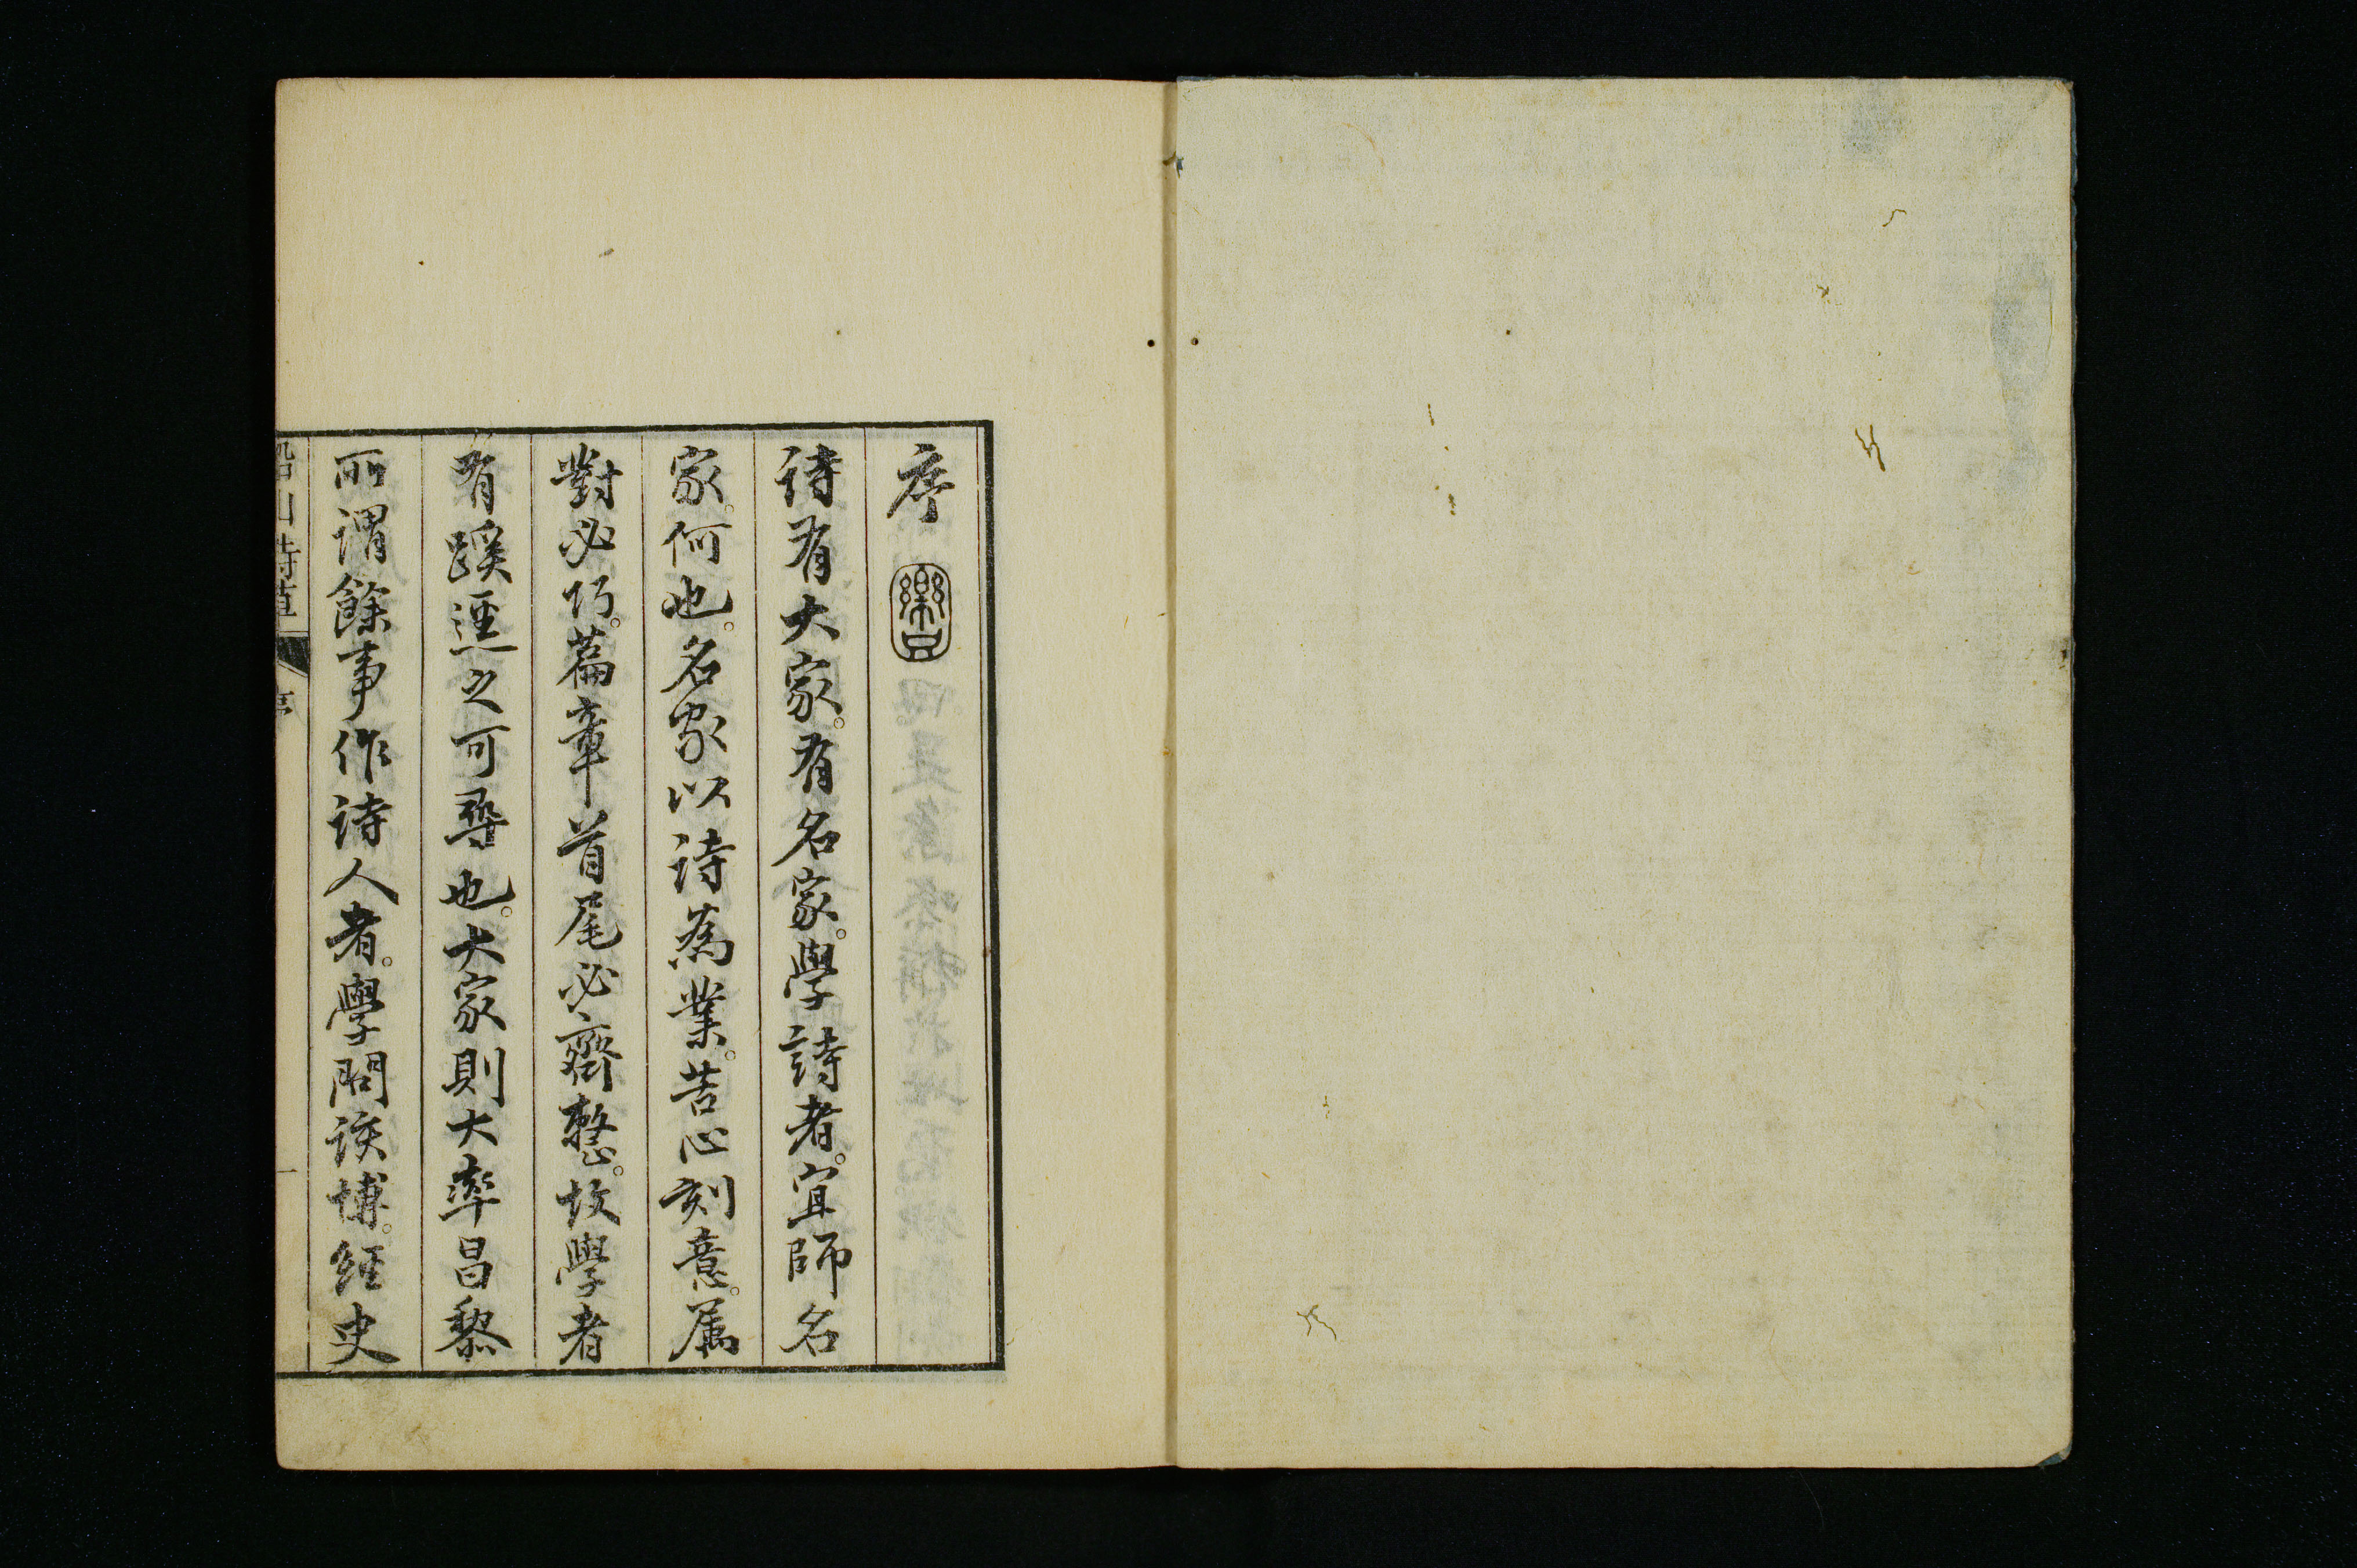 序
詩有大家。有名家。學詩者。宜師名
家。何也。名家以詩為業。苦心刻意。属
對必巧。篇章首尾必齊整。故學者
有蹊逕之可尋也。大家則大率昌黎
所謂餘事作詩人者。學問該博。經史
船山詩草
序
一